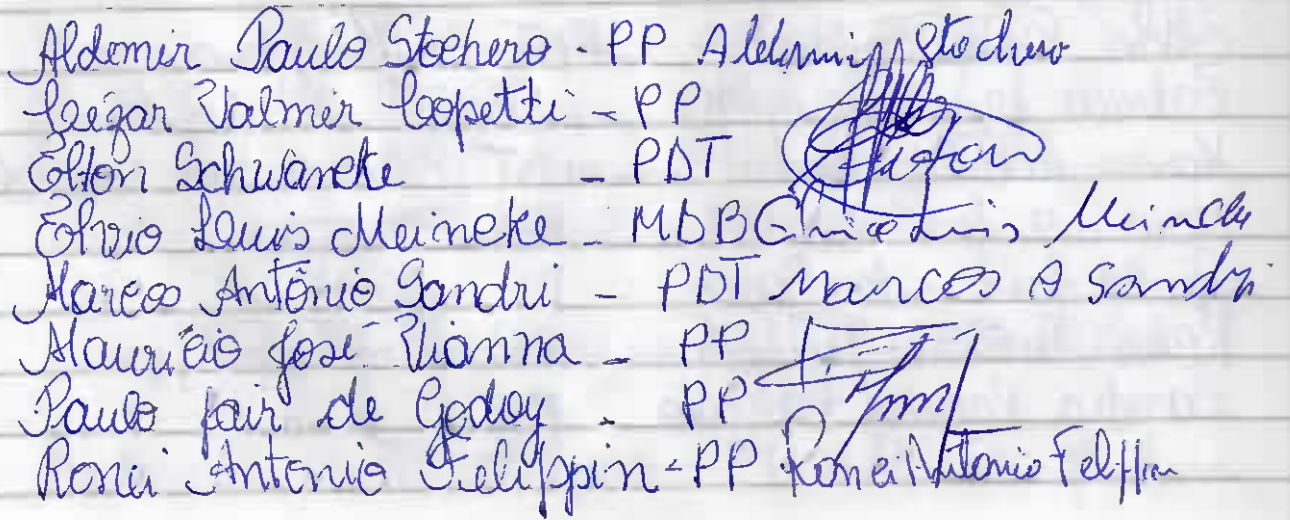 Aldemir Paulo Stochero - PP Aldemir Stochero
Cezar Valmir Copetti - PP
Elton Schwaneke - PDT Elton
Elvio Luis Meineke - MDB Elvio Luis Meincke
Marcos Antônio Sandri - PDT Marcos A Sandri
Maurício José Vianna - PP
Paulo Jair de Godoy - PP
Ronei Antonio Felippin - PP Ronei Antonio Felippin